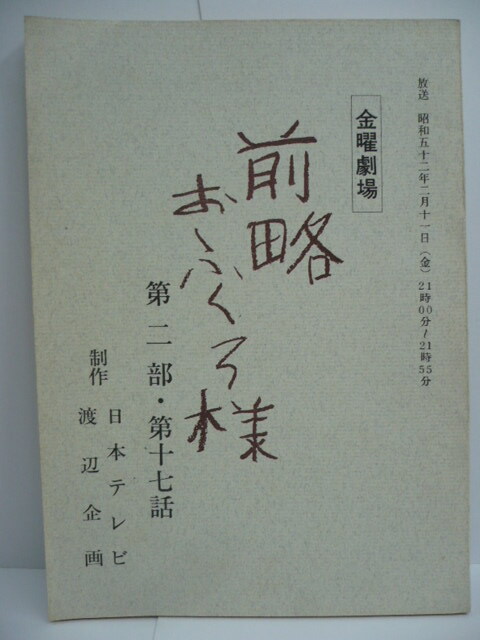 放送 昭和五十二年二月十一日(金)21時00分〜21時55分
金曜劇場
前略
おふくろ様
第二部・第十七話
制作 日本テレビ
渡辺企画